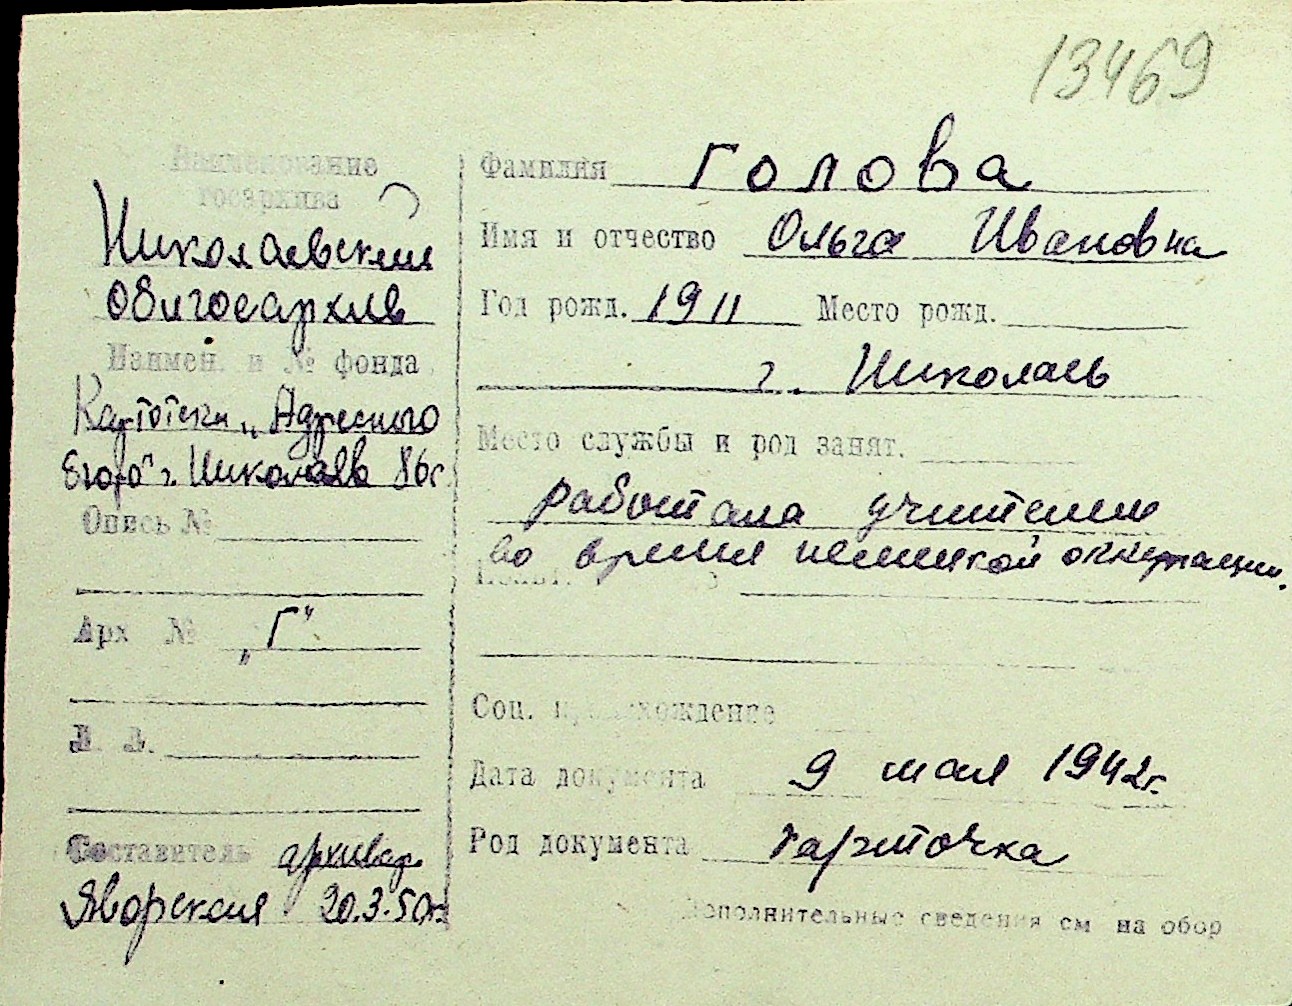 13469
Наименование
госархива
Николаевский
Облгосархив
Наимен. и № фонда
Картотека „Адресного
бюро" г. Николаева 86г.
Опись №
Арх №
„Г"
Л. Л.
Составитель архивар.
Яворская 20.3.50г.
Фамилия Голова
Имя и отчество Ольга Ивановна
Год рожд. 1911 Место рожд.
г. Николаев
Место службы и род занят.
работала учителем
во время немецкой оккупации.
Соц. происхождение
Дата документа 9 мая 1942г.
Род документа карточка
Дополнительные сведения см на обор